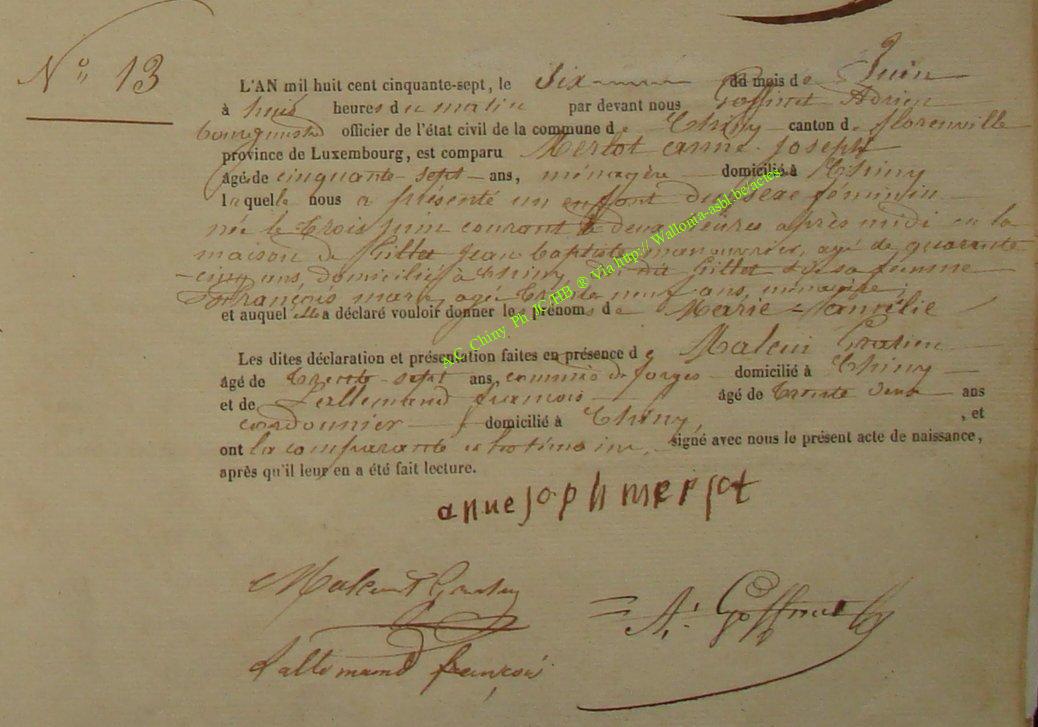 N° 13
L'AN mil huit cent cinquante-sept, le Six du mois de Juin
à huit heures du matin par devant nous Goffinet Adrien
bourgmestre officier de l'état civil de la commune de Chiny canton de florenville
province de Luxembourg, est comparu Merlot anne joseph
âgé de cinquante-sept ans, ménagère domicilié à Chiny
laquelle nous a présenté un enfant du sexe féminin
née le trois juin courant à deux heures après midi en la
maison de Gillet Jean baptiste manouvrier, agé de quarante
-cinq ans, domicilié à Chiny, du dit Gillet & de sa femme
François marie, agée trente neuf ans, ménagère,
et auquel elle a déclaré vouloir donner les prénoms de Marie-amélie
Les dites déclaration et présentation faites en présence de Malcui Gratien
âgé de trente-sept ans, commis de forges domicilié à Chiny
et de Lallemand françois âgé de trente deux ans
cordonnier domicilié à Chiny, , et
ont la comparante et témoins signé avec nous le présent acte de naissance,
après qu'il leur en a été fait lecture.
anne joph merlot
Gratien
A. Goffinet
Lallemand françois
A.C. Chiny, Ph JC/HB ® Via http:// Wallonia-asbl.be/actes